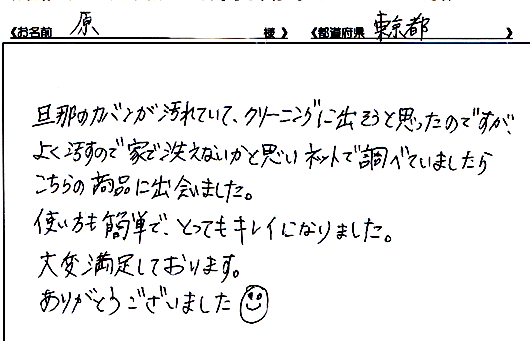 《お名前 原 様 》 《都道府県 東京都 》
旦那のカバンが汚れていて、クリーニングに出そうと思ったのですが、
よく汚すので家で洗えないかと思いネットで調べていましたら
こちらの商品に出会いました。
使い方も簡単で、とってもキレイになりました。
大変満足しております。
ありがとうございました